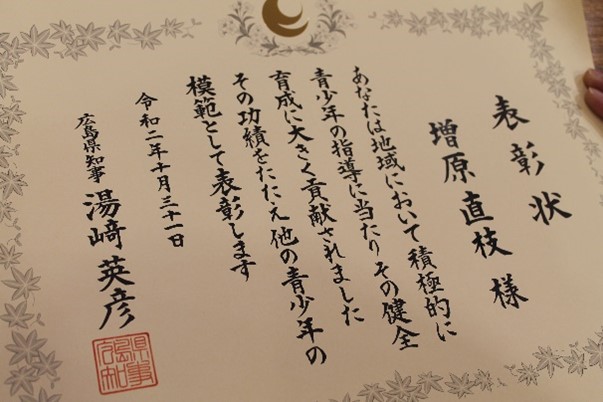 表彰状
増原直枝 様
あなたは地域において積極的に
青少年の指導に当たりその健全
育成に大きく貢献されました
その功績をたたえ他の青少年の
模範として表彰します
令和二年十月三十一日
広島県知事 湯﨑英彦
広島県知事